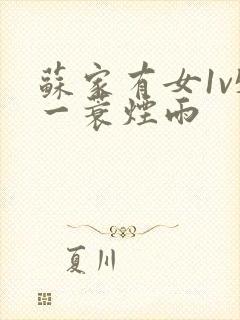 蘇家有女1v
一蓑煙雨
夏川